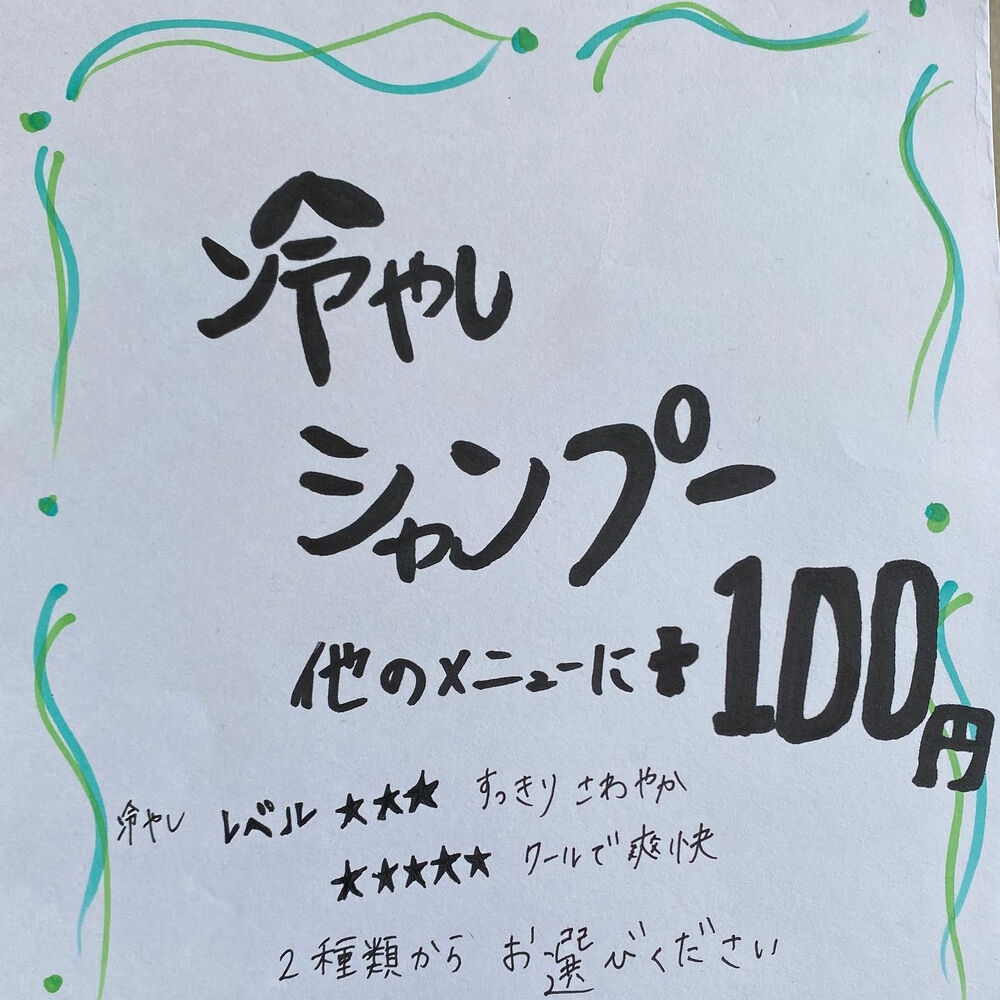 冷やし
シャンプー
他のメニューに+100円
冷やし レベル ★★★ すっきり さわやか
★★★★★ クールで爽快
2種類から お選びください